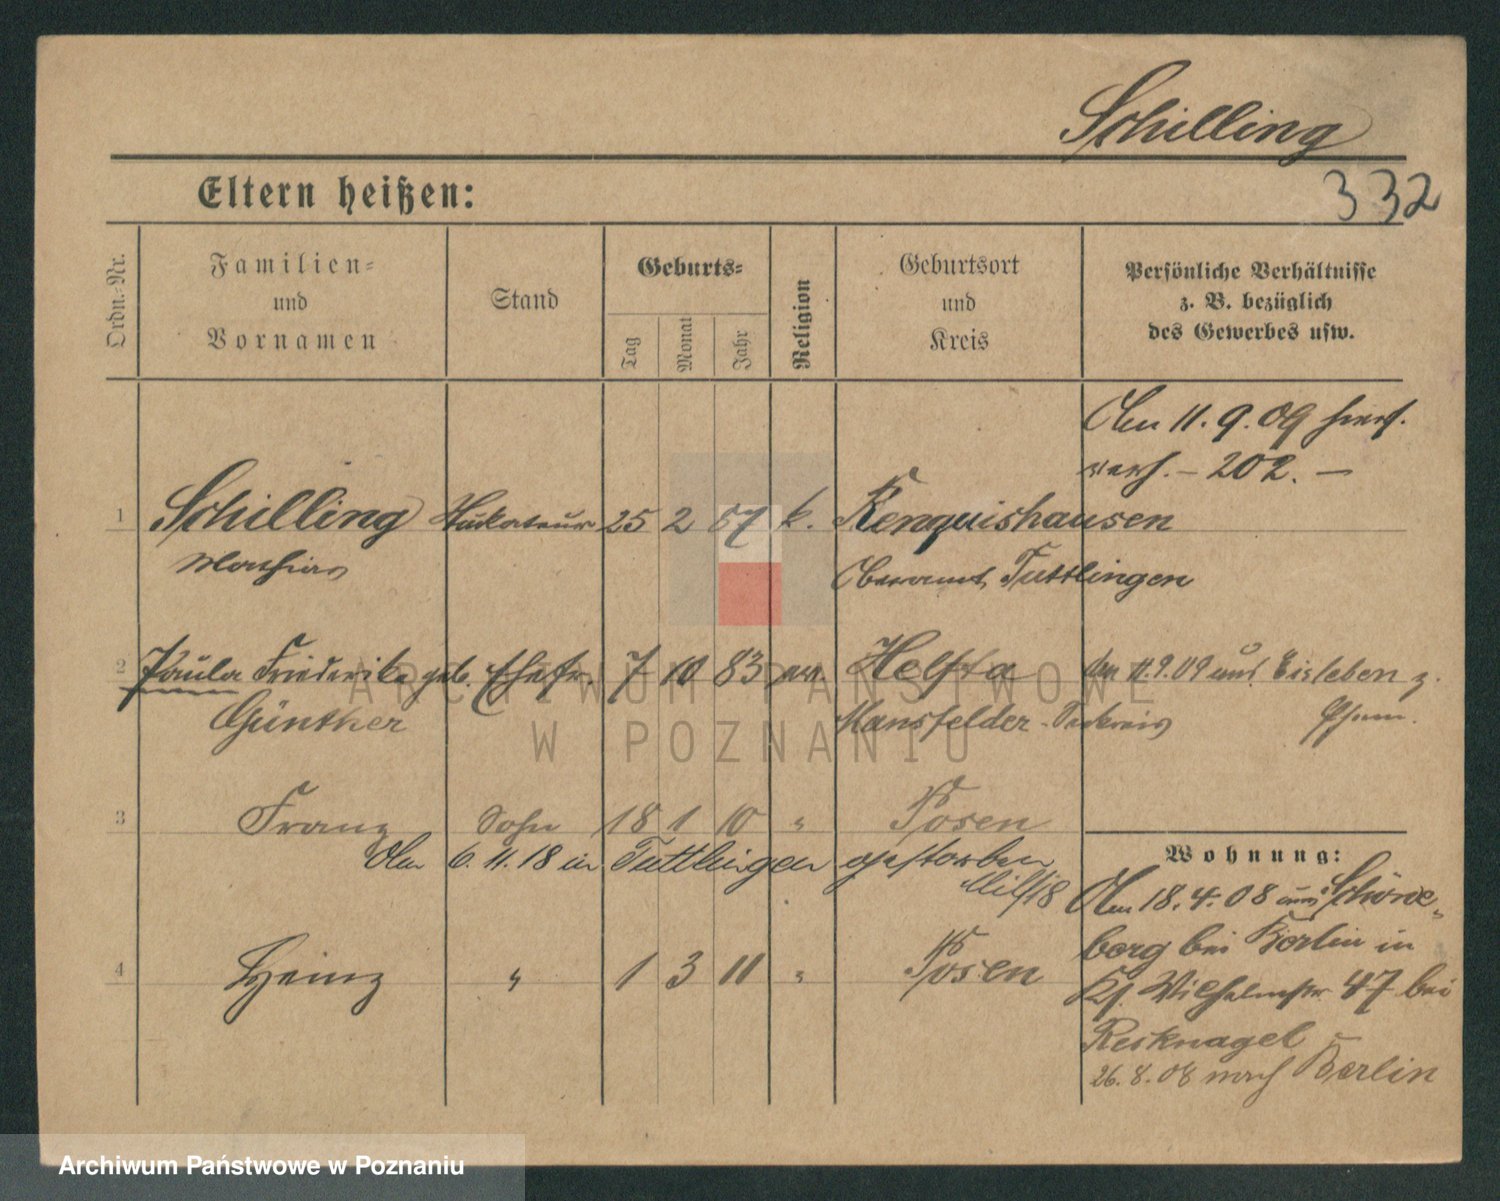 Schilling
332
Eltern heißen:
Ordn.-Nr.
Familien-
und
Vornamen
Stand
Geburts-
Tag
Monat
Jahr
Religion
Geburtsort
und
Kreis
Persönliche Verhältnisse
z. B. bezüglich
des Gewerbes usw.
Am 11.9.09 hier
verh. – 202. –
1 Schilling Stukateur 25 2 87 k. Renquishausen
Mathias Oberamt Tuttlingen
2 Paula Friederike geb. Ehefr. 7 10 83 ev. Helfta den 11.9.09 aus Eisleben z.
Günther Mansfelder Seekreis
3 Franz Sohn 18 1 10 " Posen
Am 6.11.18 in Tuttlingen gestorben
Wohnung:
Am 18.4.08 aus Schöne-
berg bei Berlin in
Wilhelmstr 47 bei
Recknagel
26.8.08 nach Berlin
4 Heinz " 1 3 11 " Posen
ARCHIWUM PAŃSTWOWE
W POZNANIU
Archiwum Państwowe w Poznaniu